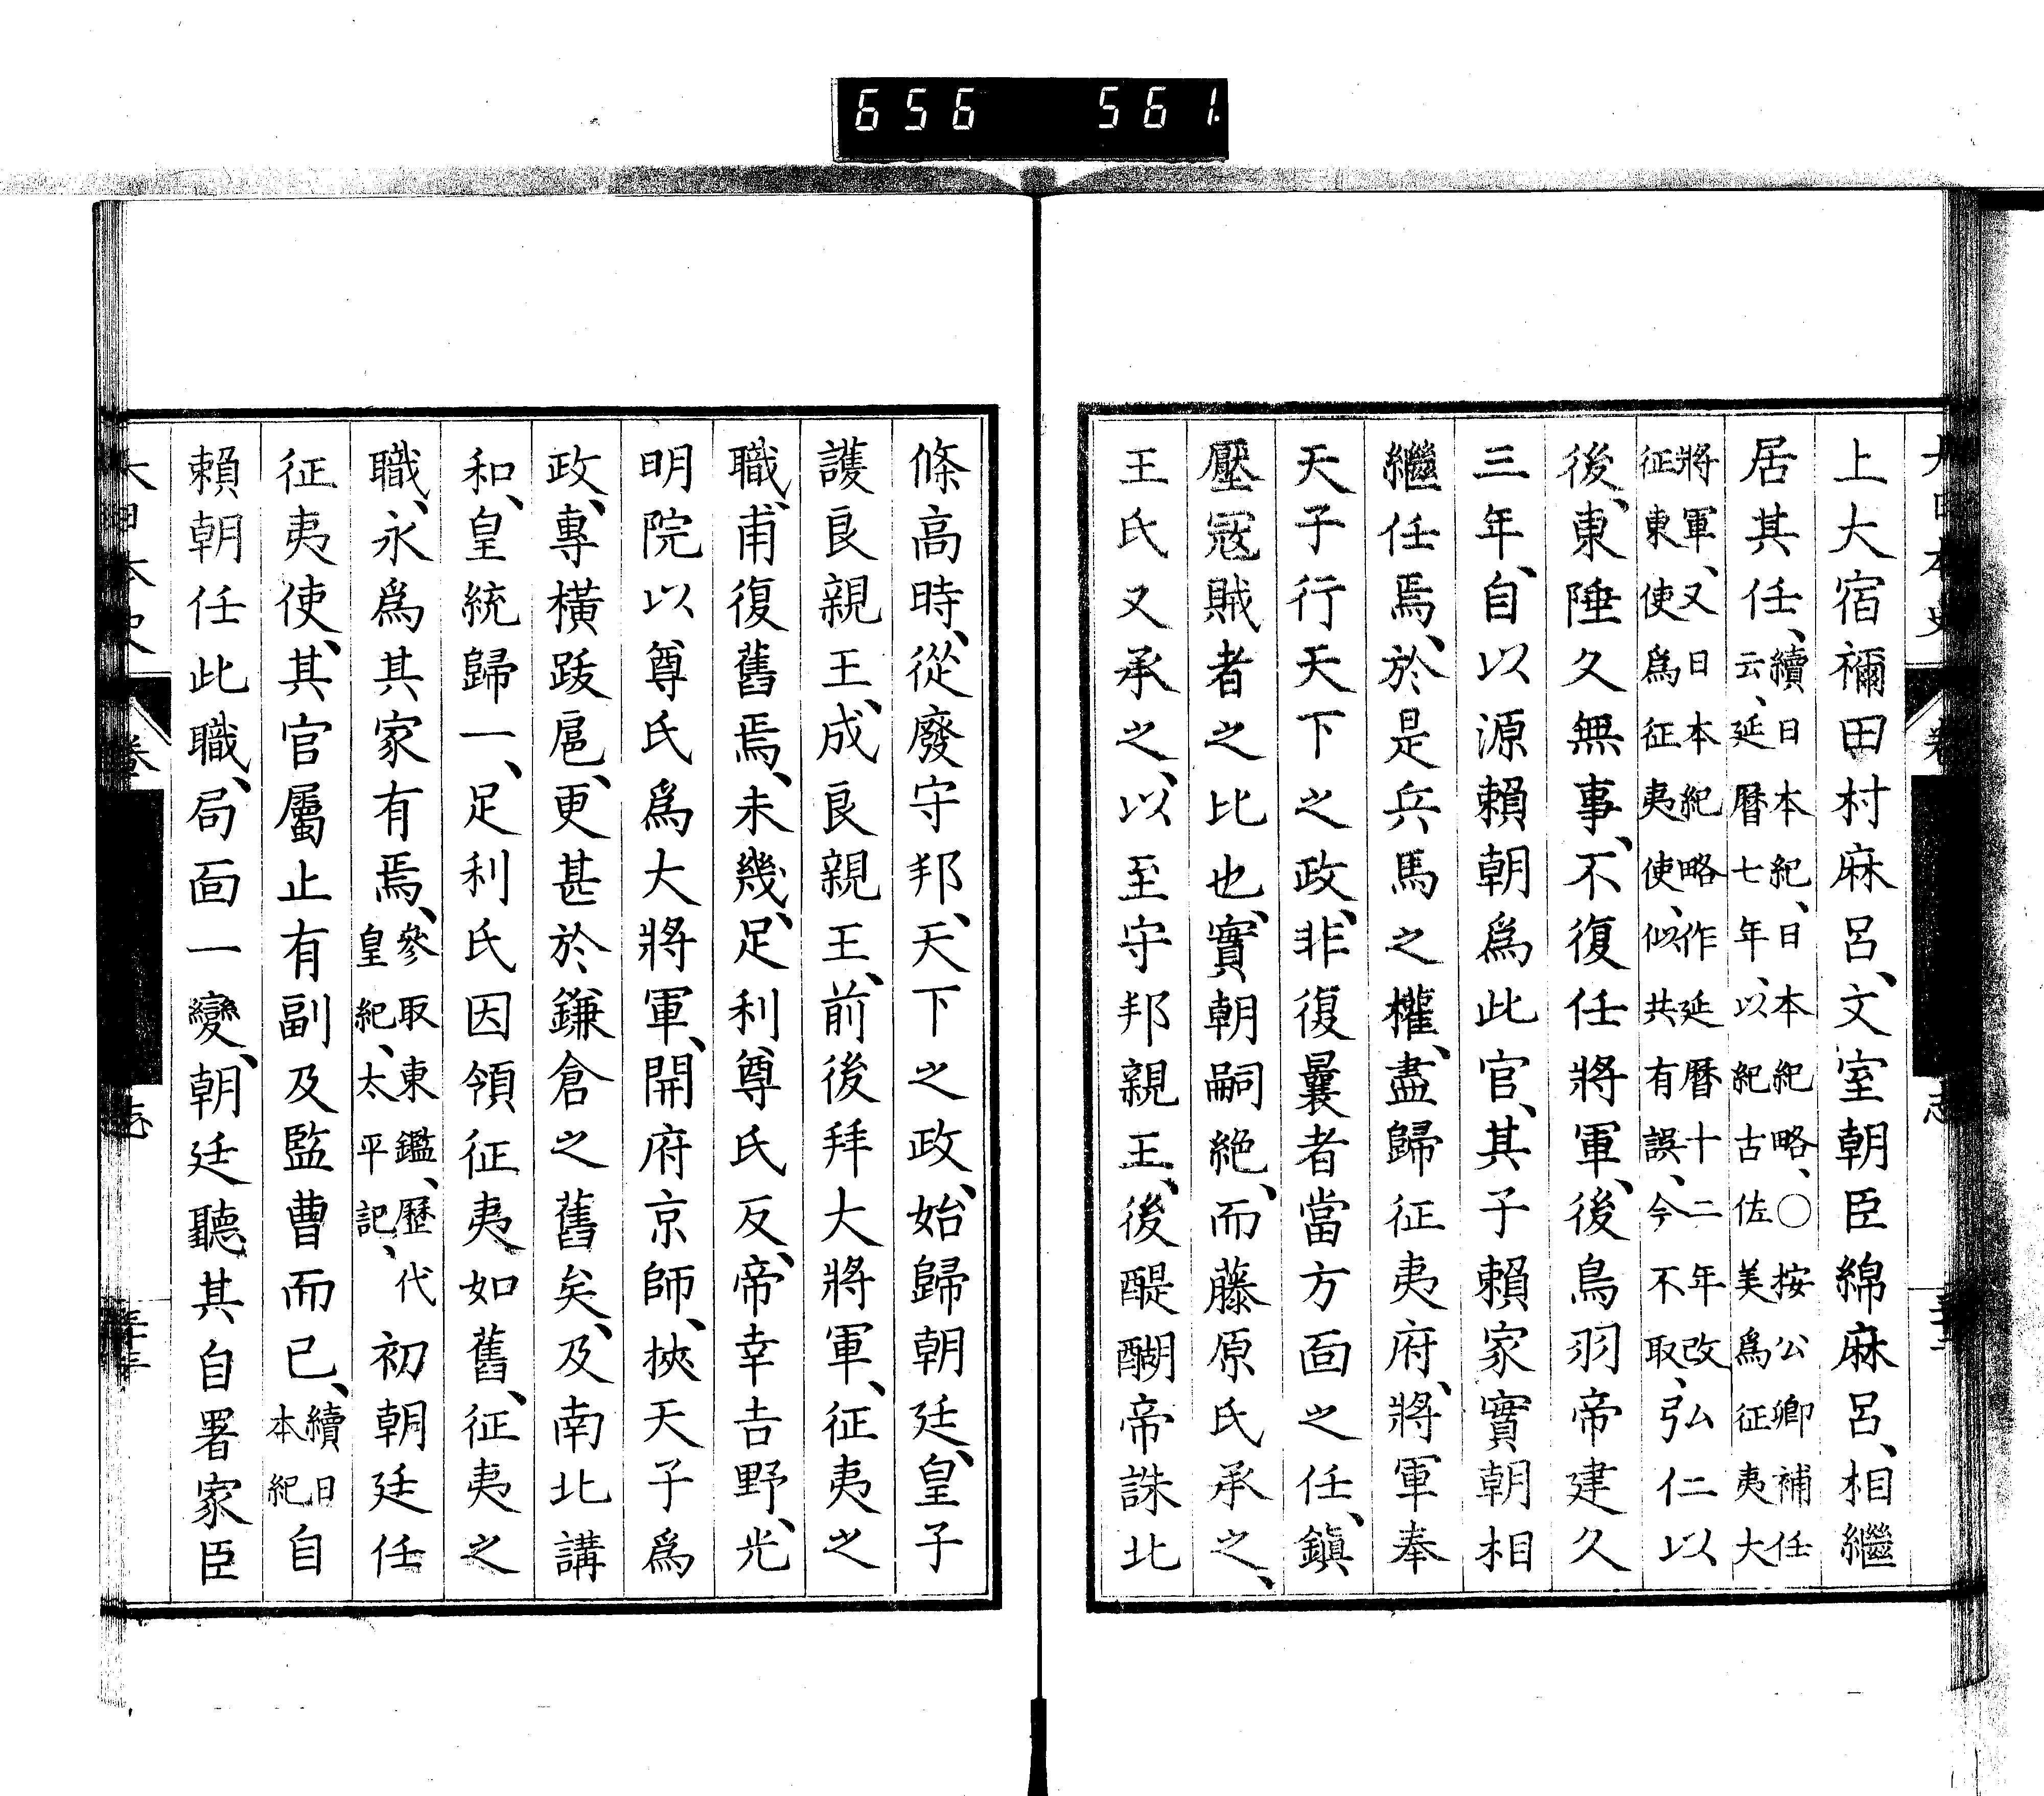 656 561.
大日本史
志
上大宿禰田村麻呂、文室朝臣綿麻呂、相繼
居其任、續日本紀、日本紀略、〇按公卿補任
云、延曆七年、以紀古佐美爲征夷大
將軍、又日本紀略作延曆十二年改
征東使爲征夷使、似共有誤、今不取、弘仁以
後、東陲久無事、不復任將軍、後鳥羽帝建久
三年、自以源賴朝爲此官、其子賴家實朝相
繼任焉、於是兵馬之權、盡歸征夷府、將軍奉
天子行天下之政、非復曩者當方面之任、鎭
壓冦賊者之比也、實朝嗣絕、而藤原氏承之、
王氏又承之、以至守邦親王、後醍醐帝誅北
條高時、從廢守邦、天下之政、始歸朝廷、皇子
護良親王、成良親王、前後拜大將軍、征夷之
職、甫復舊焉、未幾、足利尊氏反、帝幸吉野、光
明院以尊氏爲大將軍、開府京師、挾天子爲
政、專橫跋扈、更甚於鎌倉之舊矣、及南北講
和、皇統歸一、足利氏因領征夷如舊、征夷之
職、永爲其家有焉、參取東鑑、歷代
皇紀、太平記、初朝廷任
征夷使、其官屬止有副及監曹而已、續日
本紀自
賴朝任此職、局面一變、朝廷聽其自署家臣
大日本史
卷
志